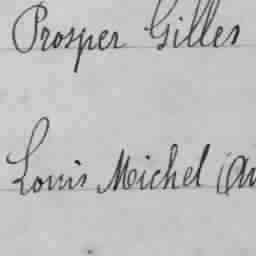 Prosper Gilles
Louis Michel (Au